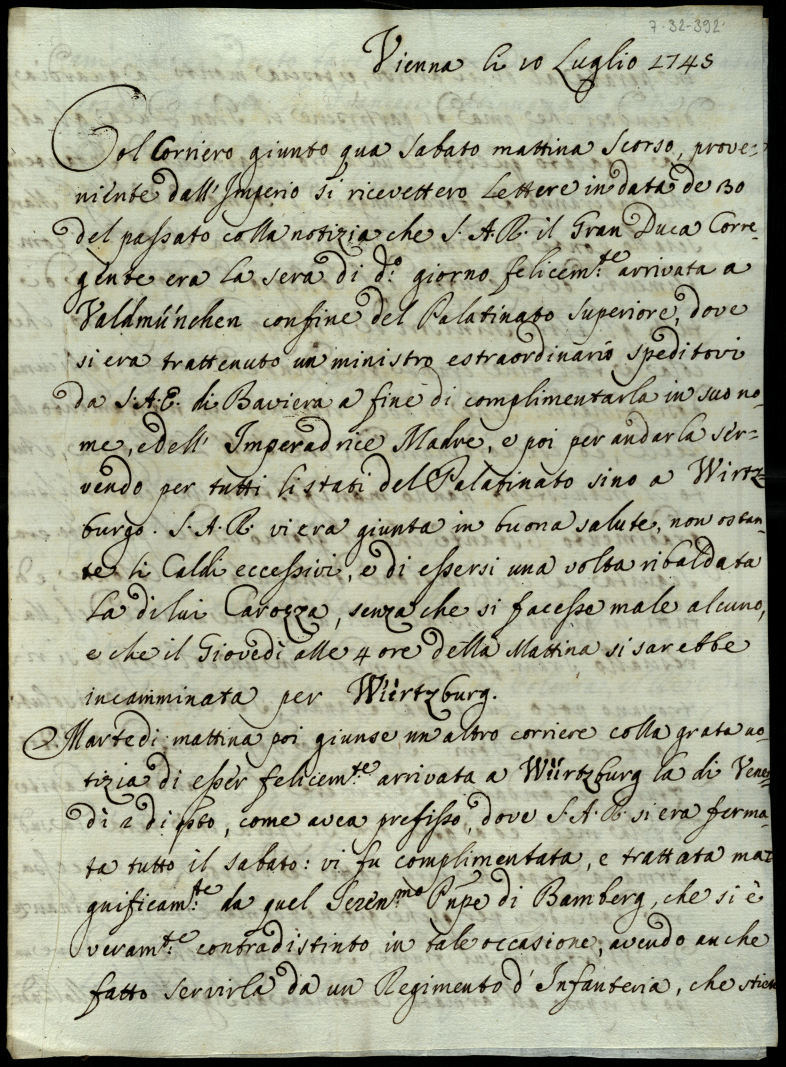 7-32-392
Vienna li 10 Luglio 1745
Col Corriero giunto qua Sabato mattina Scorso, prove=
niente dall' Imperio si ricevettero Lettere in data de 30
del passato colla notizia che S. A. R. il Gran Duca Corre-
gente era La sera di do. giorno felicem.te arrivata a
Valdmünchen confine del Palatinato Superiore, dove
si era trattenuto un ministro estraordinario speditovi
da S. A. E. di Baviera a fine di complimentarla in suo no-
me, e dell' Imperadrice Madre, e poi per andarla ser=
vendo per tutti li stati del Palatinato sino a Wirtz-
burgo. S. A. R. vi era giunta in buona salute, non ostan-
te li Caldi eccessivi, e di essersi una volta ribaldata
La di lui Carozza, senza che si facesse male alcuno,
e che il Giovedì alle 4 ore della Mattina si sarebbe
incamminata per Würtzburg.
Martedi mattina poi giunse un altro corriere colla grata no-
tizia di esser felicem.te arrivata a Würtzburg la di Vener-
dì 2 di qsto, come avea prefisso, dove S. A. R. si era ferma-
ta tutto il sabato: vi fu complimentata, e trattata ma=
gnificam.te da quel Seren.mo Pnpe di Bamberg, che si è
veram.te contradistinto in tale occasione, avendo anche
fatto servirla da un Regimento d' Infanteria, che stiede